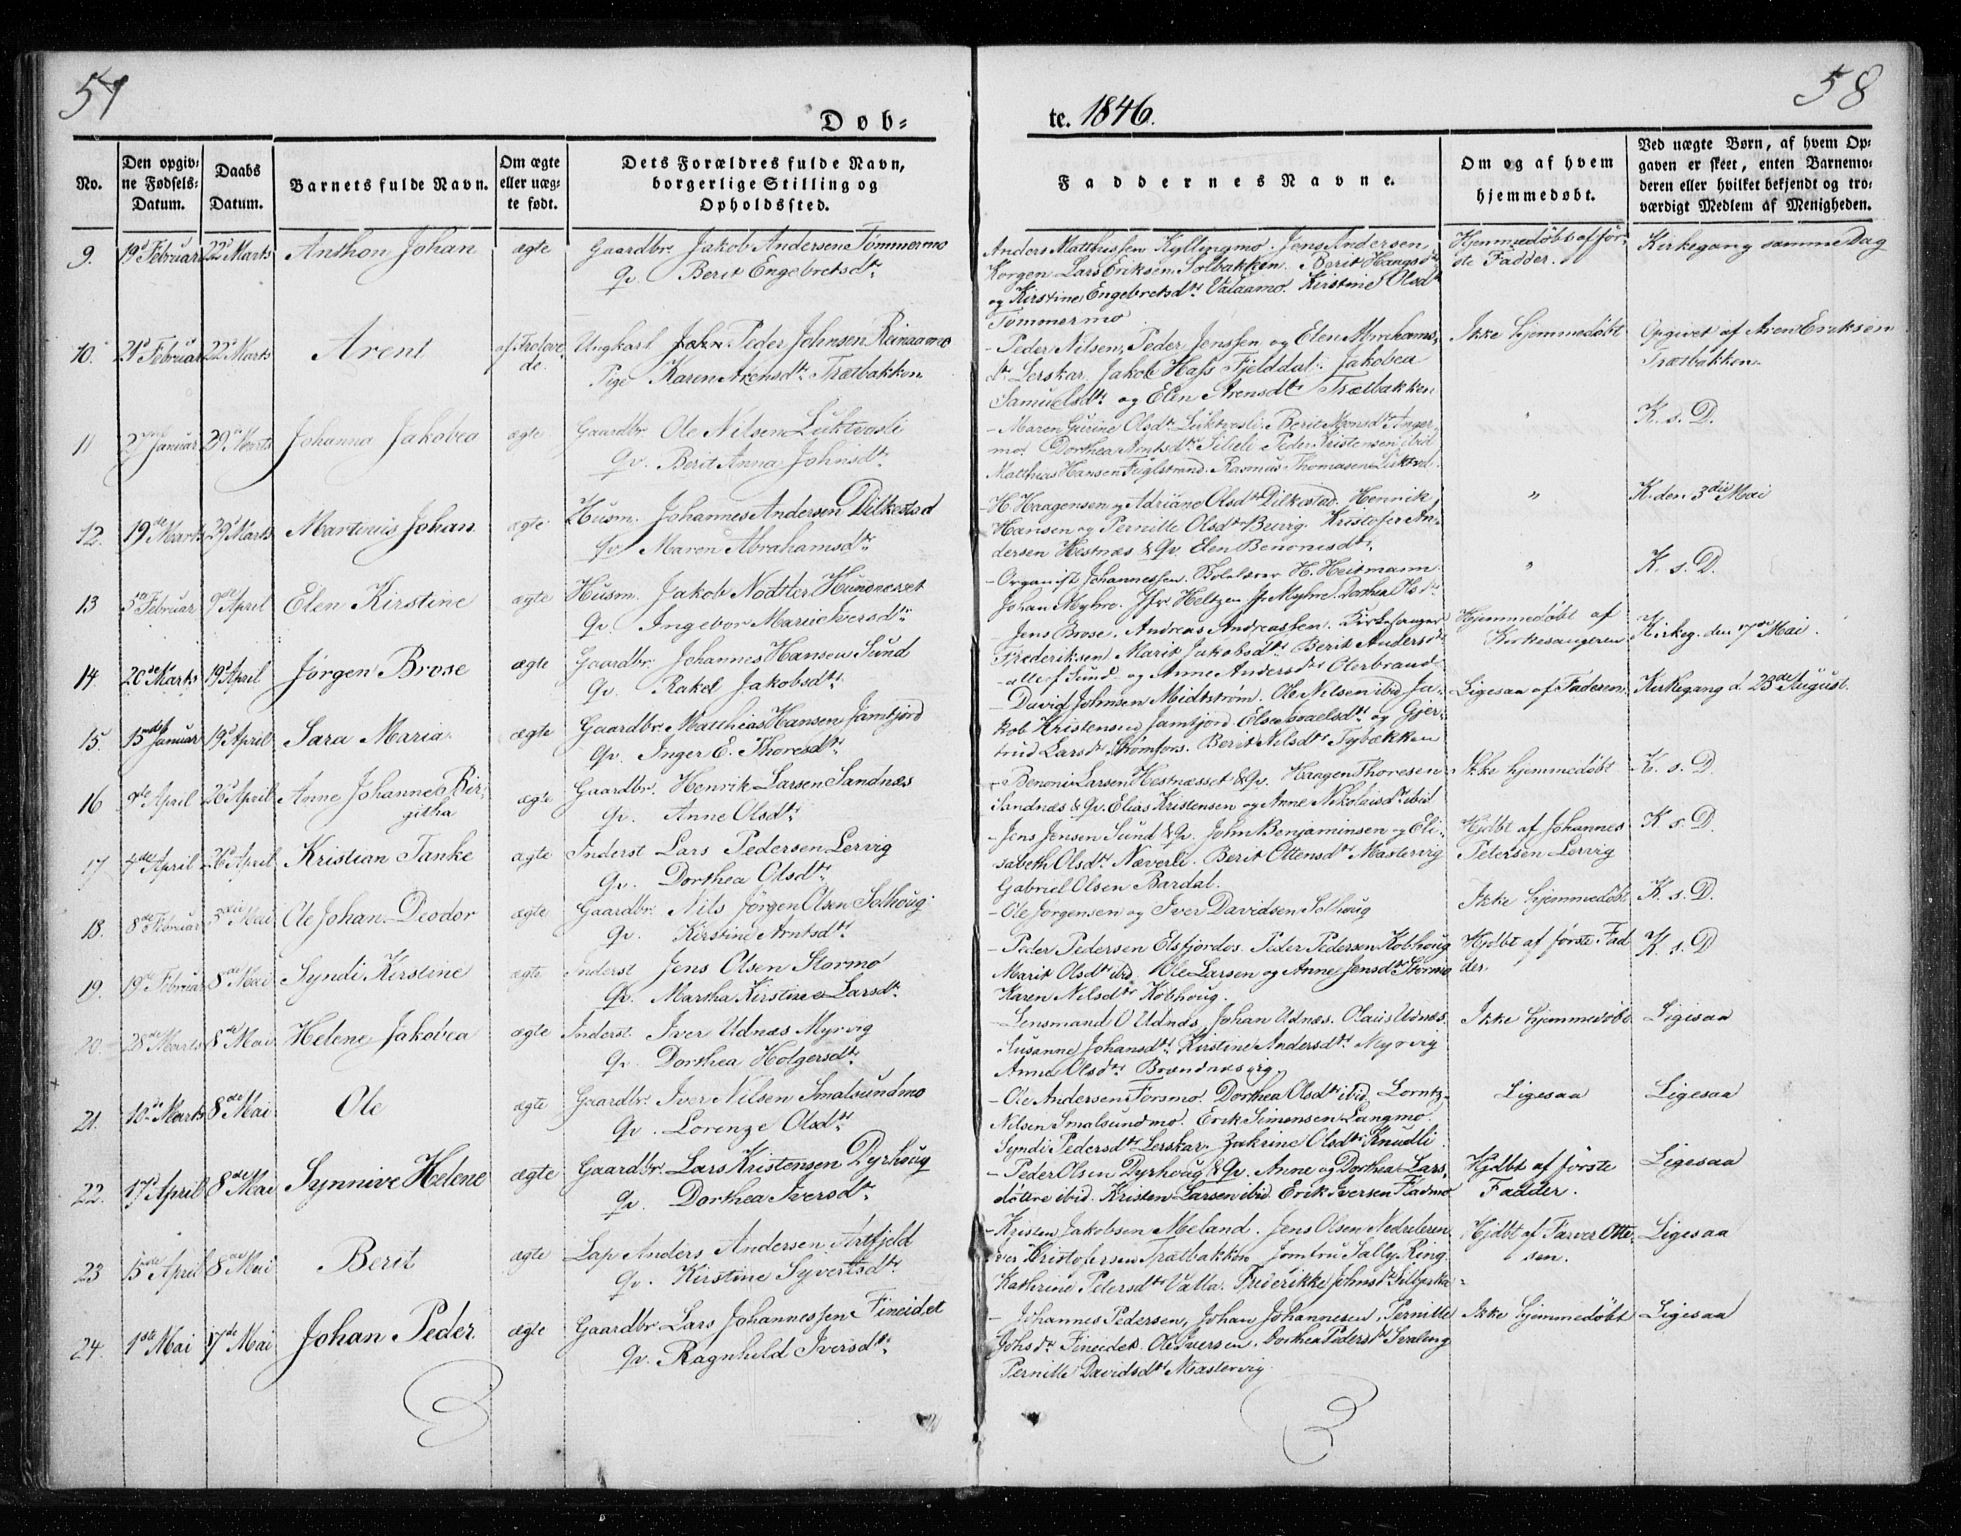 57
58
Døb-
te. 1846.
No.
Den opgiv-
ne Fødsels-
Datum.
Daabs
Datum.
Barnets fulde Navn.
Om ægte
eller uæg-
te født.
Dets Forældres fulde Navn,
borgerlige Stilling og
Opholdssted.
Faddernes Navne.
Om og af hvem
hjemmedøbt.
Ved uægte Børn, af hvem Op-
gaven er skeet, enten Barnemo-
deren eller hvilket bekjendt og tro-
værdigt Medlem af Menigheden.
9. 19d Februar 22d Marts Anthon Johan ægte Gaardbr. Jakob Andersen Tømmermo
Qv. Berit Engebretsdtr
Anders Matthissen Kyllingmo. Jens Andersen,
Korgen Lars Eriksen Solbakken. Berit Haagsdtr
og Kirstine Engebretsdtr Valaamo. Kirstine Olsdtr
Tømmermo
Hjemmedøbt af før-
ste Fadder.
Kirkegang samme Dag
10. 21d Februar 22d Marts Arent af Trolove-
de. Ungkarl Peder Johnsen Reinaamo
Pige Karen Arensdtr Trætbakken
- Peder Nilsen, Peder Jenssen og Elen Abrahams-
dtr Lerskar. Jakob Hass Fjelddal. Jakobea
Samuelsdtr og Elen Arensdtr Trætbakken
Ikke hjemmedøbt
Opgivet af Aren Eriksen
Trætbakken.
11 2den Januar 29de Marts Johanna Jakobea ægte Gaardbr. Ole Nilsen Luktvasli
Qv. Berit Anna Johnsdtr
- Maren Gurine Olsdtr Luktvasli. Berit Monsdtr Anger-
mo. Dorthea Arntsdtr Peder Kristensen ibid
Matthias Hansen Fuglstrand. Rasmus Thomasen
"
K. s. D.
12. 19de Marts 29d Marts Martinus Johan ægte Husm. Johannes Andersen Dilkestad
Qv. Maren Abrahamsdtr
- H. Haagensen og Adriane Olsdtr Dilkestad. Henrik
Hansen og Pernille Olsdtr Kristofer An-
dersen Hestnæs & Qv. Elen Benonisdtr
"
K. den 3die Mai
13 5te Februar 9de April Elen Kirstine ægte Husm. Jakob Nodtter Hundneset
Qv. Ingebor Marie Iversdtr
- Organist Johannessen. Skolelærer H. Heitmann
Johan Myhre. Jfr Heltzen Jfr Myhre. Dorthea Olsdtr
"
K. s. D.
14. 20de Marts 19d April Jørgen Brose ægte Gaardbr. Johannes Hansen Sund
Qv. Rakel Jakobsdtr
- Jens Brose. Andreas Andreassen. Kirkesanger
Frederiksen Marit Jakobsdtr Berit Andersdtr
alle f Sund og Anne Andersdtr Olerbrand
Hjemmedøbt af
Kirkesangeren
Kirkeg. den 17de Mai.
15. 15nde Januar 19d April Sara Maria ægte Gaardbr. Matthias Hansen Jamtjord
Qv. Inger E. Thoresdtr
- David Johnsen Midtstrøm. Ole Nilsen ibid Ja-
kob Kristensen Jamtjord. og Gjer-
trud Larsdtr Strømfors. Berit Nilsdtr Tybækken
Ligesaa af Faderen
Kirkegang d. 23de August.
16 9de April 26d April Anne Johanne Bir-
githa ægte Gaardbr. Henrik Larsen Sandnæs
Qv. Anne Olsdtr
- Benoni Larsen Hestnæsset & Qv. Haagen Thoresen
Sandnæs & Qv. Elias Kristensen og Anne Nikolaisdtr ibid
Ikke hjemmedøbt
K. s. D.
17 4de April 26d April Kristian Tanke ægte Inderst Lars Pedersen Lervig
Qv. Dorthea Olsdtr
- Jens Jensen Sund & Qv. John Benjaminsen og Eli-
sabeth Olsdtr Næverli. Berit Ottensdtr Mastervig
Gabriel Olsen Bardal.
Hjdbt af Johannes
Petersen Lervig
K s. D.
18. 8de Februar 3die Mai Ole Johan Deodor ægte Gaardbr. Nils Jørgen Olsen Solhoug.
Qv. Kirstine Arntsdtr
- Ole Jørgensen og Iver Davidsen Solhoug
Ikke hjemmedøbt
K. s. D.
19. 19de Februar 8de Mai Syndi Kirstine ægte Inderst Jens Olsen Stormo
Qv. Martha Kirstine Larsdtr
- Peder Pedersen Elsfjordos. Peder Pedersen Kobhoug
Marit Olsdtr ibid Ole Larsen og Anne Jensdtr Stormo
Karen Nilsdtr Kobhoug.
Hjdbt af første Fad
der.
K. s. D
20. 28de Marts 8de Mai Helene Jakobea ægte Inderst. Iver Udnæs Myrvig
Qv. Dorthea Holgersdtr
- Lensmand O Udnæs, Johan Udnæs. Olaus Udnæs.
Susanne Johansdtr. Kirstine Andersdtr Myrvig
Anne Olsdtr
Ikke hjemmedøbt
Ligesaa
21. 10de Marts 8de Mai Ole ægte Gaardbr. Iver Nilsen Smalsundmo
Qv. Lorenze Olsdtr
- Ole Andersen Forsmo. Dorthea Olsdtr ibid. Lorntz
Nilsen Smalsundmo. Erik Simonsen Langmo.
Syndi Pedersdtr Lerskar. Zakrine Olsdtr Knudli.
Ligesaa
Ligesaa
22. 17d April 8de Mai Synnive Helene ægte Gaardbr. Lars Kristensen Dyrhoug
Qv. Dorthea Iversdtr
- Peder Olsen Dyrhoug & Qv. Anne og Dorthea Lars-
døttre ibid. Kristen Larsen ibid Erik Iversen Fladmo
Hjdbt af første
Fadder.
Ligesaa
23 15nde April 8de Mai Berit ægte Lap Anders Andersen Artfjeld
Qv. Kirstine Syvertsdtr
- Kristen Jakobsen Meland. Jens Olsen Nedreleren
Iver Kristofersen Trætbakken Jomfru Sally Ring.
Kathrine Petersdtr Valla. Friderikke Johnsdtr
Hjdbt af Farver Otte-
sen.
Ligesaa
24. 1ste Mai 17de Mai Johan Peder ægte Gaardbr. Lars Johannessen Fineidet
Qv. Ragnhild Iversdtr
- Johannes Pedersen, Johan Johannesen, Pernille
Johsdtr Fineidet. Ole Iversen. Dorthea Pedersdtr Svaleng
Pernille Davidsdtr Mastervig
Ikke hjemmedøbt
Ligesaa